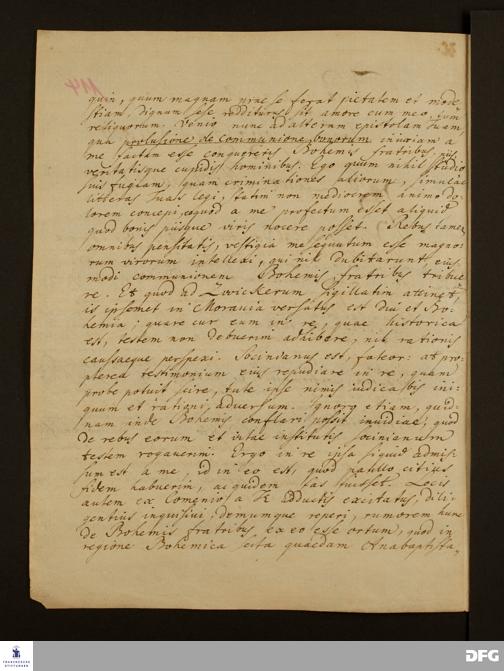 114
quin, quum magnam prae se ferat pietatem et mode-
stiam, dignum sese redditurus sit amore cum meo tum
reliquorum. Venio nunc ad alteram epistolam Tuam,
qua prolusione de Communione bonorum iniuriam a
me factam esse conquereris Bohemis fratribus, piis
veritatisque cupidis hominibus. Ego quum nihil studio-
sius fugiam, quam criminationes aliorum, simulac
litteras Tuas legi, statim non mediocrem animo do-
lorem concepi, eoquod a me profectum esset aliquid
quod bonis piisque viris nocere posset. Rebus tamen
omnibus pensitatis, vestigia me sequutum esse magno-
rum virorum intellexi, qui nil dubitarunt, eius-
modi communionem Bohemis fratribus tribue-
re. Et quod ad Zwickerum sigillatim attinet,
is ipsemet in Moravia versatus est diu et Bo-
hemia; quare cur eum in re, quae historica
est, testem non debuerim adhibere, nil rationis
caussaeque perspexi. Socinianus est, fateor: at pro-
pterea testimonium eius repudiare in re, quam
probe potuit scire, tute ipse nimis iudicabis ini-
quum et rationi adversum. Ignoro etiam, quid-
nam inde Bohemis conflari possit invidiae, quod
de rebus eorum et vitae institutis socinianum
testem rogaverim. Ergo in re ipsa siquid admis-
sum est a me, id in eo est, quod paullo citius
fidem habuerim, ac quidem fas fuisset. Locis
autem ex Comenio a Te adductis excitatus, dili-
gentius inquisivi, demumque reperi, rumorem hunc
de Bohemis fratribus ex eo esse ortum, quod in
regione Bohemica scita quaedam Anabaptista-
FRANCKESCHE
STIFTUNGEN
DFG